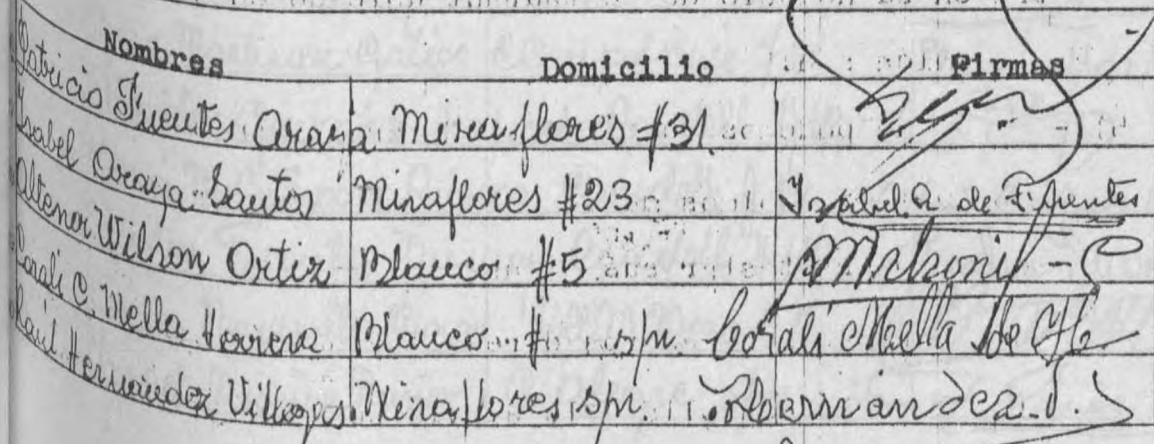 Nombres Domicilio Firmas
Patricio Fuentes Araya Miraflores #31
Isabel Araya Santos Miraflores #23 Isabel A de Fuentes
Altenor Wilson Ortiz Blanco #5
Corali C. Mella Herrera Blanco # s/n Corali Mella de
Raul Hernandez Villegas Miraflores s/n Hernandez